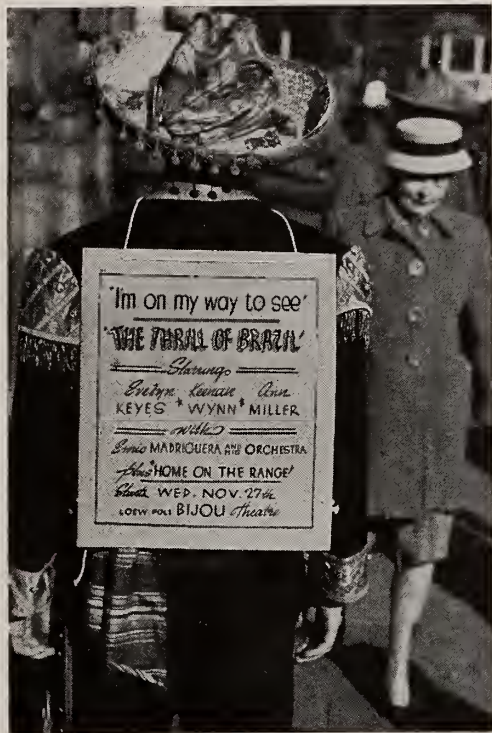 'I'm on my way to see'
'THE THRILL OF BRAZIL'
Starring
Evelyn Keenan Ann
KEYES * WYNN * MILLER
with
Enric MADRIGUERA AND HIS ORCHESTRA
plus 'HOME ON THE RANGE'
Starts WED. NOV. 27th
LOEW POLI BIJOU Theatre